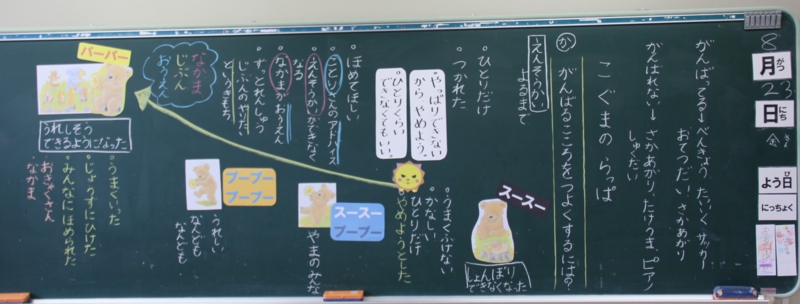 8
月
がつ
23
日
にち
金
よう日
び
にっちょく
がんばってる→べんきょう たいいく サッカー
おてつだい さかあがり
がんばれない→さかあがり、たけうま、ピアノ
しゅくだい
こぐまの らっぱ
か がんばるこころをつよくするには?
えんそうかい よるまで
スースー
しょんぼり
できなくなった
・ひとりだけ
つかれた
・うまくふけない
かなしい
ひとりだけ
やめようとした
やっぱりできない
からやめよう。
ひとりくらい
できなくてもいい。
・ほめてほしい
・ことりさんのアドバイス
・えんそうかいができなく
なる
・なかまがおうえん
・ずっとれんしゅう
じぶんのやりたい
というきもち
スースー
プープー
やまのみだ
プープー
プープー
うれしい
なんども
なんども
なかま
じぶん
おうえん
パーパー
うれしそう
できるようになった
・うまくいった
・じょうずにひけた
・みんなにほめられた
おきゃくさん
なかま